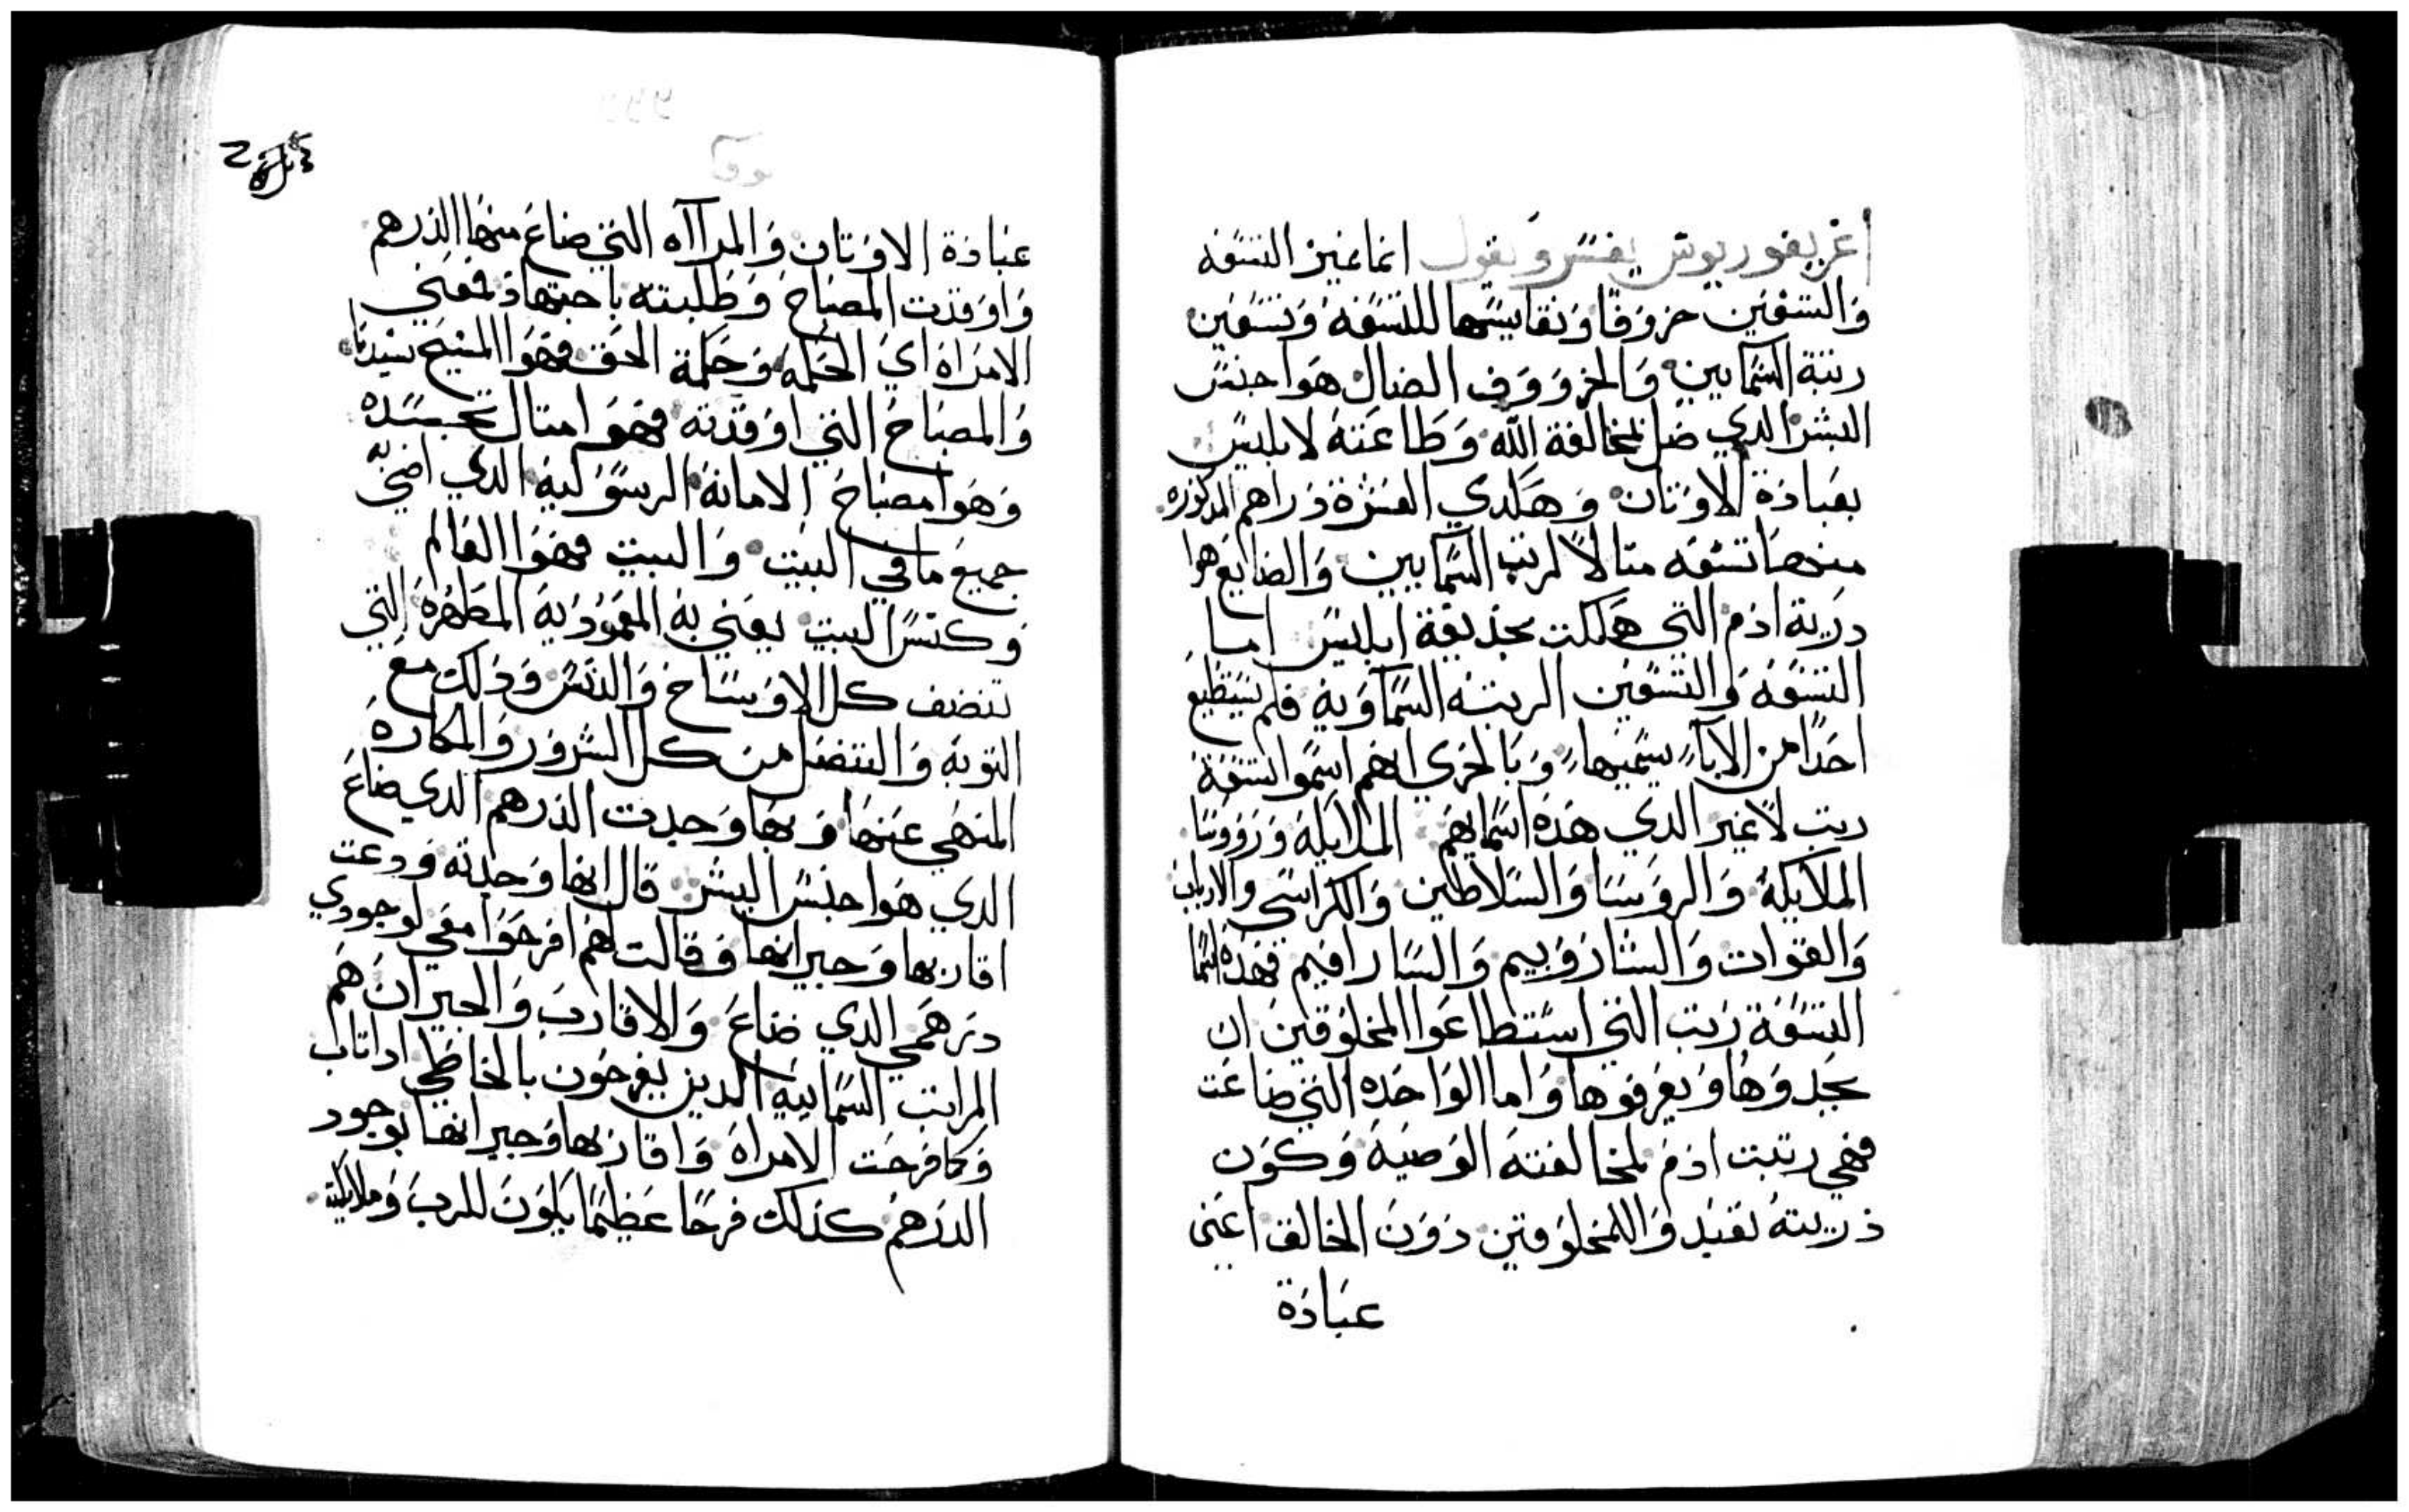 اغريغوريوس يفسر ويقول انما غير التسعه
والتسعين خروفا وتقايسها للتسعه وتسعين
رتبة السمايين والخرووف الضال هوا جنس
البشر الدي ضل لمخالفة الله وطاعته لابليس
بعبادة الاوتان وهكدي العشرة دراهم المدكوره
منها تسعه متالاً لرتب السمايين والضايع هوا
درية ادم التي هلكت بخديعة ابليس اما
التسعه والتسعين الرتبه السماويه فلم يستطيع
احدا من الابآ يسميها وبالحري انهم اسموا تسعة
رتب لا غير الدي هده اسمايهم الملايكة ورووسا
الملايكة والروسا والسلاطين والكراسي والارباب
والقوات والشاروبيم والسارافيم فهده اسما
التسعة رتب التي استطاعوا المخلوقين ان
يجدوها ويعرفوها واما الواحده التي ضاعت
فهي رتبت ادم لمخالفته الوصية وكون
ذريته تعبد واللمخلوقين دون الخالق اعني
عبادة
عبادة الاوتان والمراآه التي ضاع منها الدرهم
واوقدت المصباح وطلبته باجتهاد فعني
الامراة اي الحكمه وحكمة الحق فهوا المسيح سيدنا
والمصباح التي اوقدته فهوا امتال تجسده
وهوا مصباح الامانة الرسولية الدي اضي به
جميع ما في البيت والبيت فهوا العالم
وكنس البيت يعني به المعمودية المطهره التي
تنضف كل الاوساخ والدنس ودلك مع
التوبه والتنضل من كل الشرور والمكاره
المنهي عنها وبها وجدت الدرهم الدي ضاع
الدي هوا جنس البشر قال انها وجدته ودعت
اقاربها وجيرانها وقالت لهم افرحوا معي لوجودي
درهمي الدي ضاع والاقارب والجيران هم
المراتب السمايية الدين يفرحون بالخاطي ادا تاب
وكما فرحت الامراة واقاربها وجيرانها بوجود
الدرهم كدلك فرحًا عظيمًا يكون للرب وملايكته